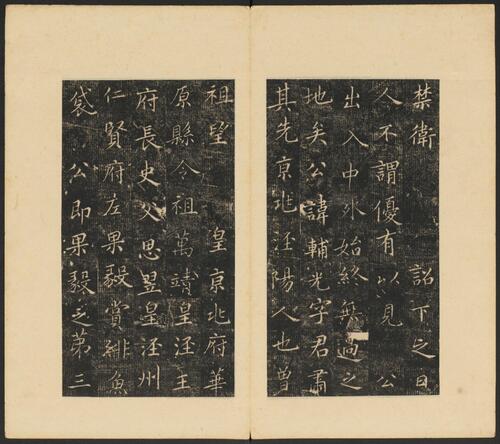 禁衛 詔下之日
令不謂優有以見 公
出入中外始終無過之
地矣公諱輔光字君肅
其先京兆涇陽人也曾
祖望 皇京兆府華
原縣令祖萬靖皇涇王
府長史父思翌皇涇州
仁賢府左果毅賞緋魚
袋 公即果毅之第三